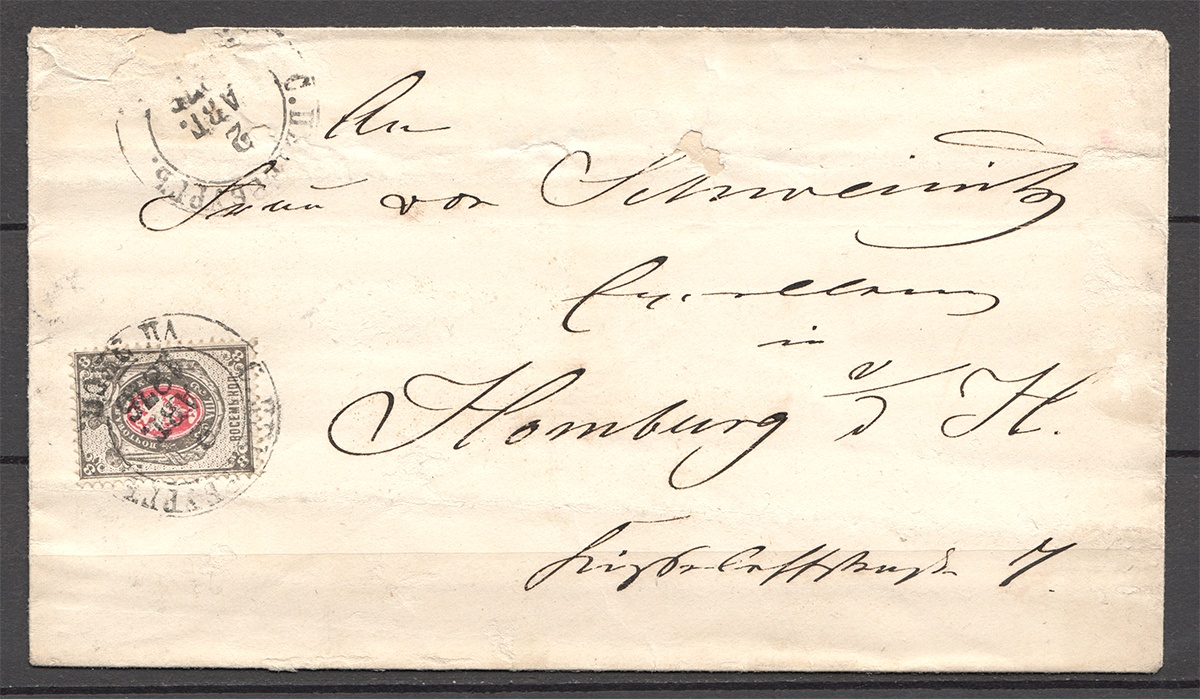 An
Frau von Schweinitz
Excellenz
in
Homburg v/d H.
Kisseleffstrasse 7.
2
АВГ.
ВОСЕМЬ КОП.